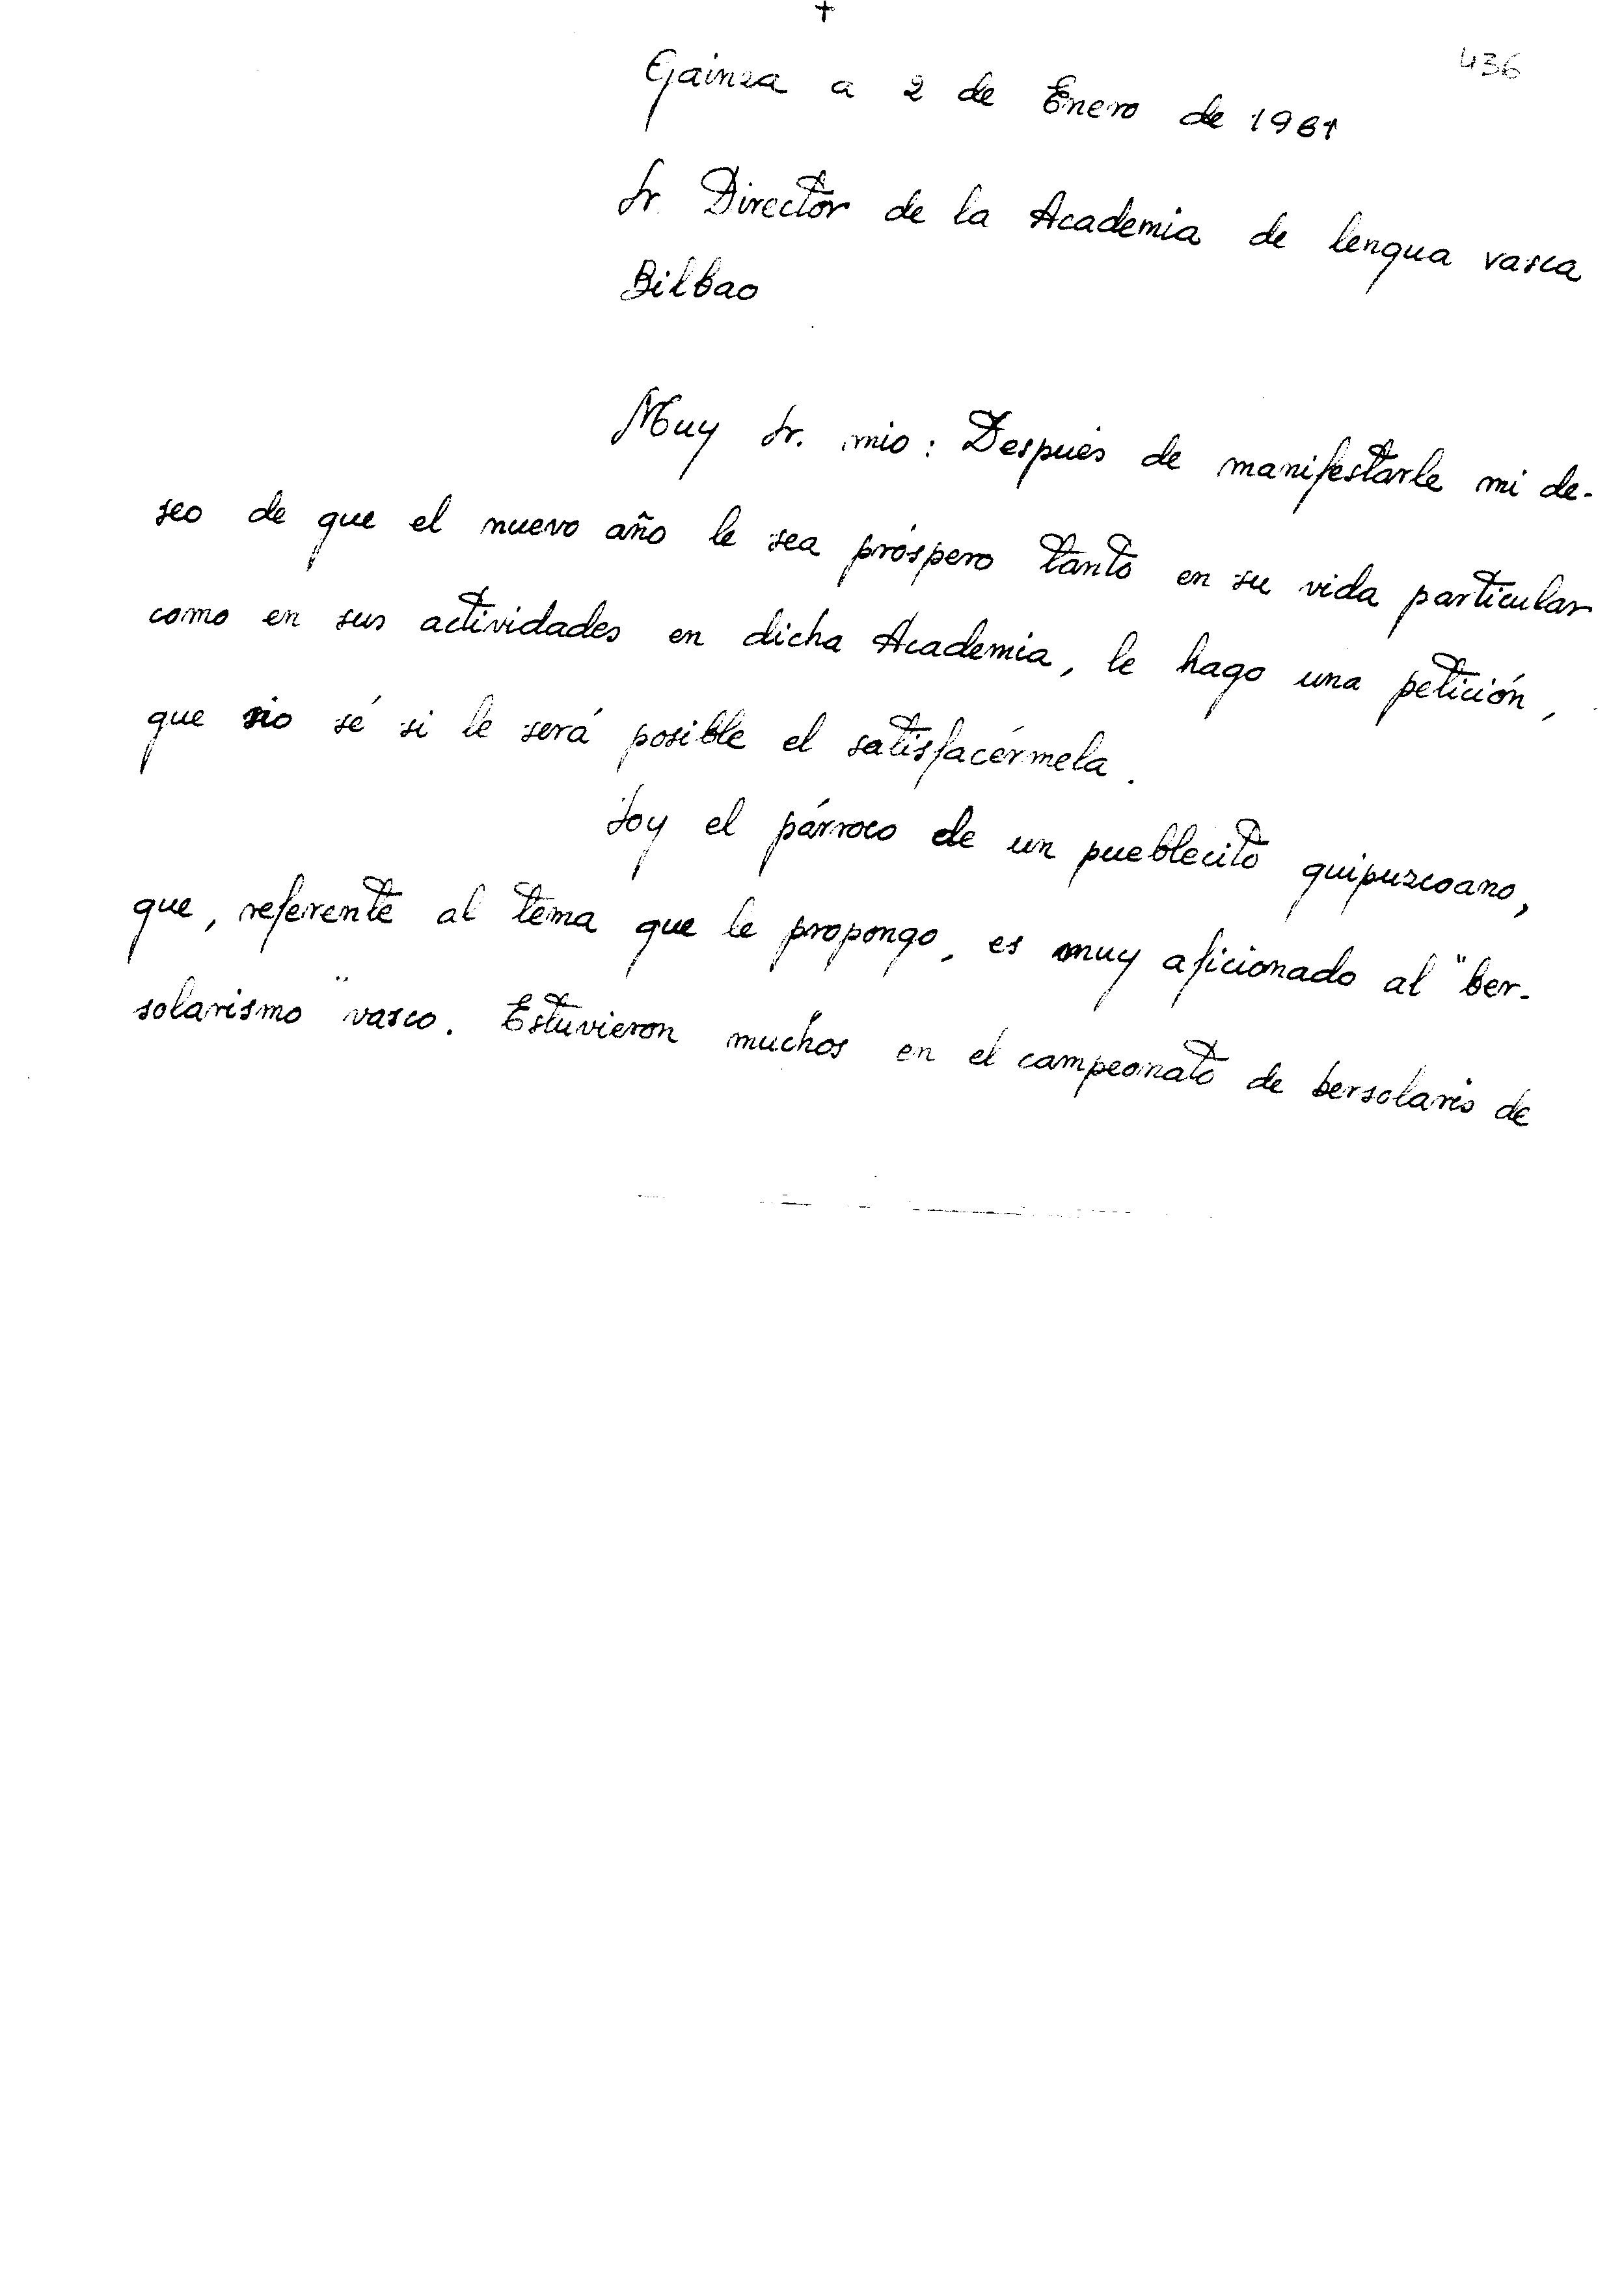 †
436
Gainza a 2 de Enero de 1961
Sr. Director de la Academia de lengua vasca
Bilbao
Muy Sr. mio: Después de manifestarle mi de-
seo de que el nuevo año le sea próspero tanto en su vida particular
como en sus actividades en dicha Academia, le hago una petición,
que no sé si le será posible el satisfacérmela.
Soy el párroco de un pueblecito guipuzcoano,
que, referente al tema que le propongo, es muy aficionado al "ber-
solarismo" vasco. Estuvieron muchos en el campeonato de bersolaris de